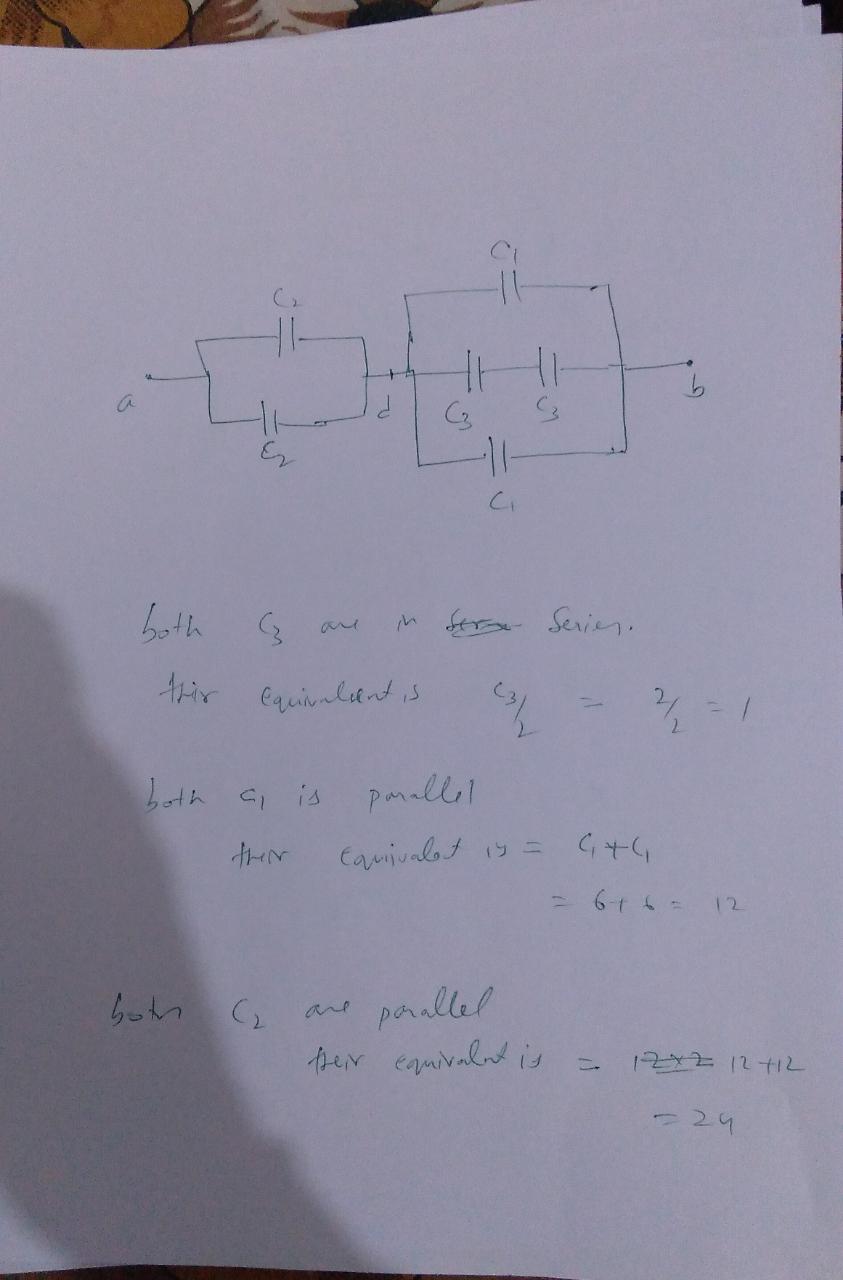 C1
C2
a
d
b
C3 C3
C2
C1
both C3 are in series.
thir equivalent is C3/2 = 2/2 = 1
both C1 is parallel
their equivalent is = C1+C1
= 6+6 = 12
both C2 are parallel
their equivalent is = 12×2 12+12
= 24